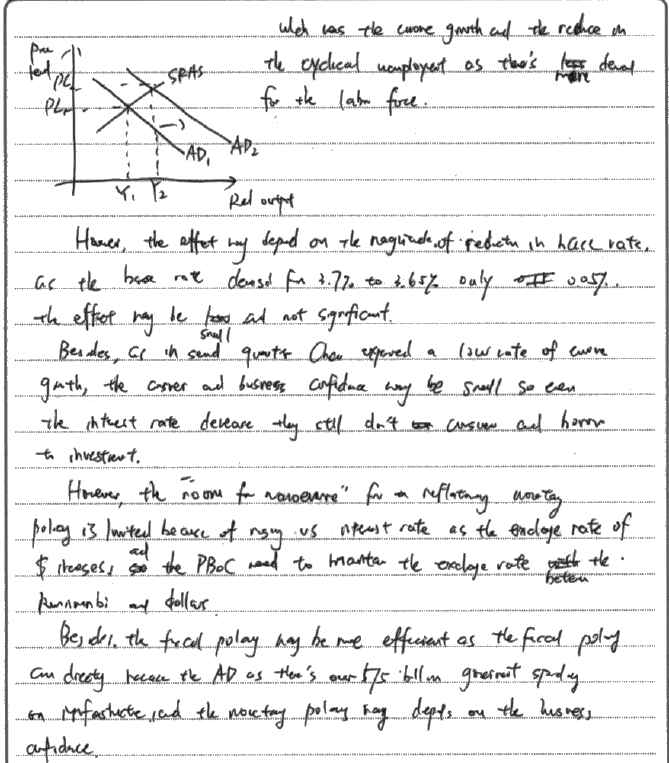 which was the economic growth and the reduce in
the cyclical unemployment as there's more demand
for the labour force.
Price
level
PL
PL1
SRAS
AD1
AD2
Y1 Y2
Real output
However, the effect may depend on the magnitude of reduction in base rate.
as the base rate decreased from 3.7% to 3.65% only 0.05%.
the effect may be small and not significant.
Besides, as in second quarter China experienced a low rate of economic
growth, the consumer and business confidence may be small so even
the interest rate decrease they still don't consume and borrow
to investment.
However, the "room for manoeuvre" for a reflationary monetary
policy is limited because of rising US interest rate as the exchange rate of
$ increases, and the PBoC need to maintain the exchange rate between the
Renminbi and dollars
Besides, the fiscal policy may be more efficient as the fiscal policy
can directly increase the AD as there's over $75 billion government spending
on infrastructure, and the monetary policy may depends on the business
confidence.